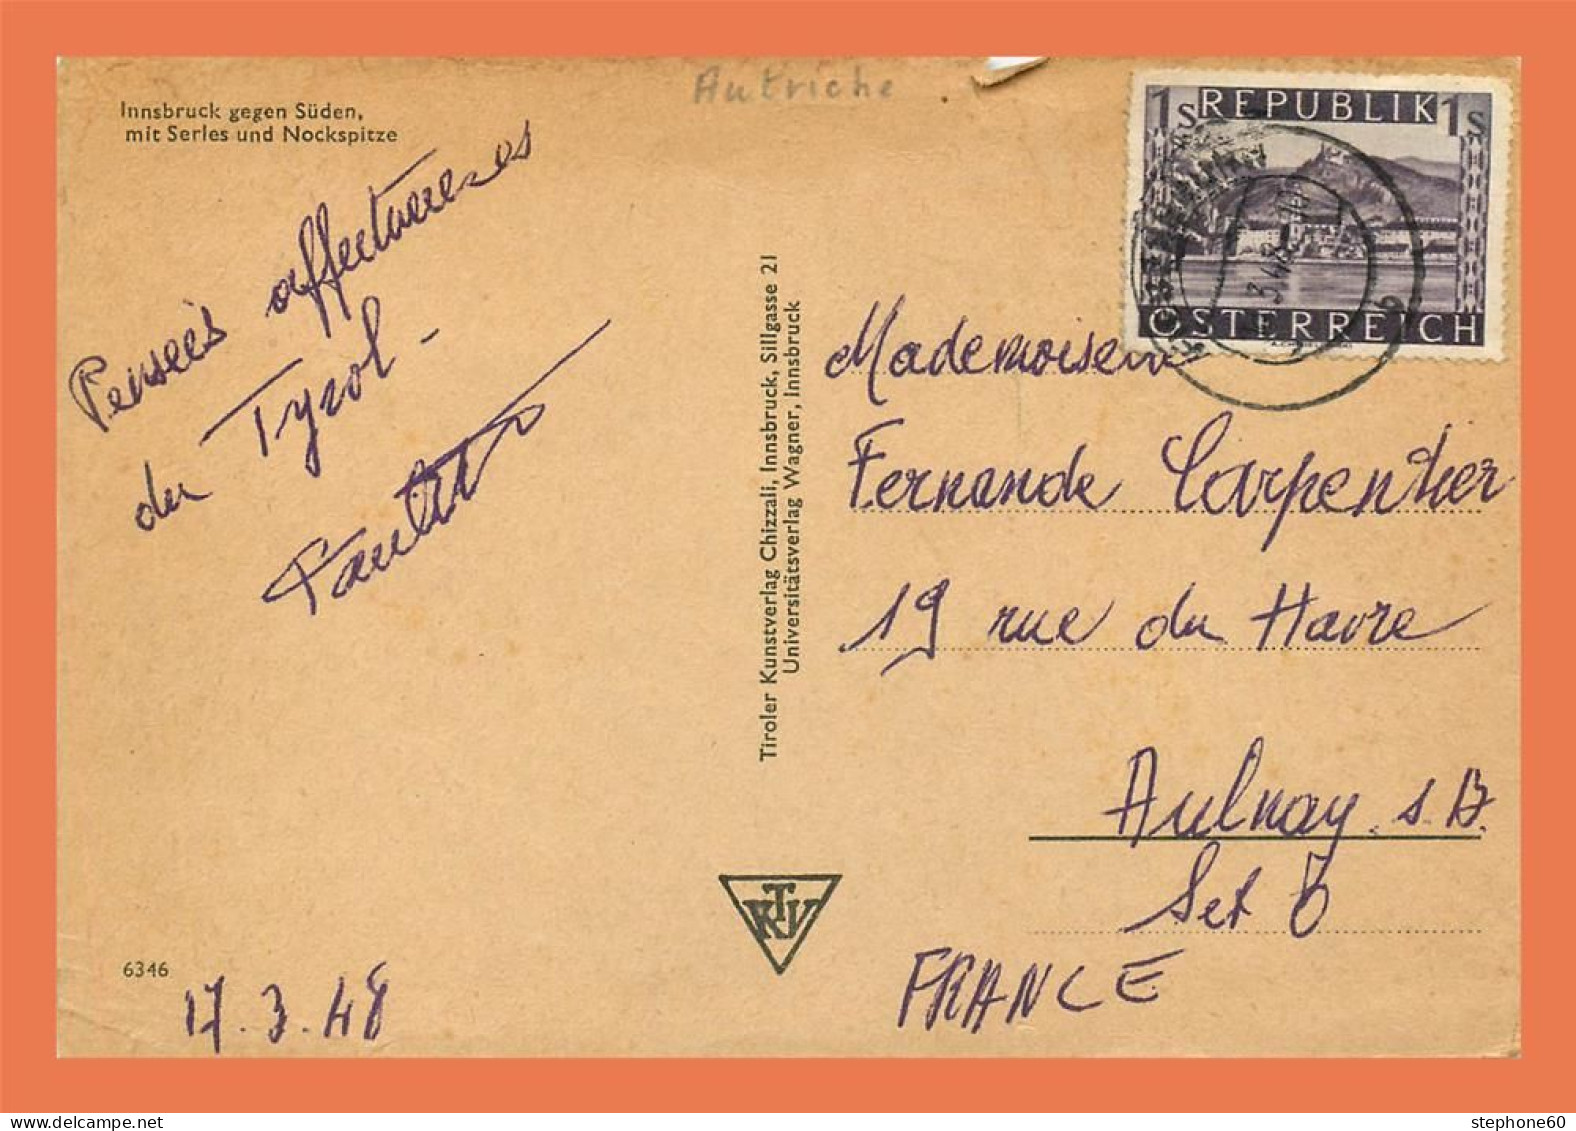 Autriche
Innsbruck gegen Süden,
mit Serles und Nockspitze
Penseés affectueuses
du Tyrol -
17.3.48
6346
Tiroler Kunstverlag Chizzali, Innsbruck, Sillgasse 21
Universitätsverlag Wagner, Innsbruck
KTV
1S REPUBLIK 1S
ÖSTERREICH
Mademoiselle
Fernande Carpentier
19 rue du Havre
Aulnay s. B.
Set O
FRANCE
stephone60